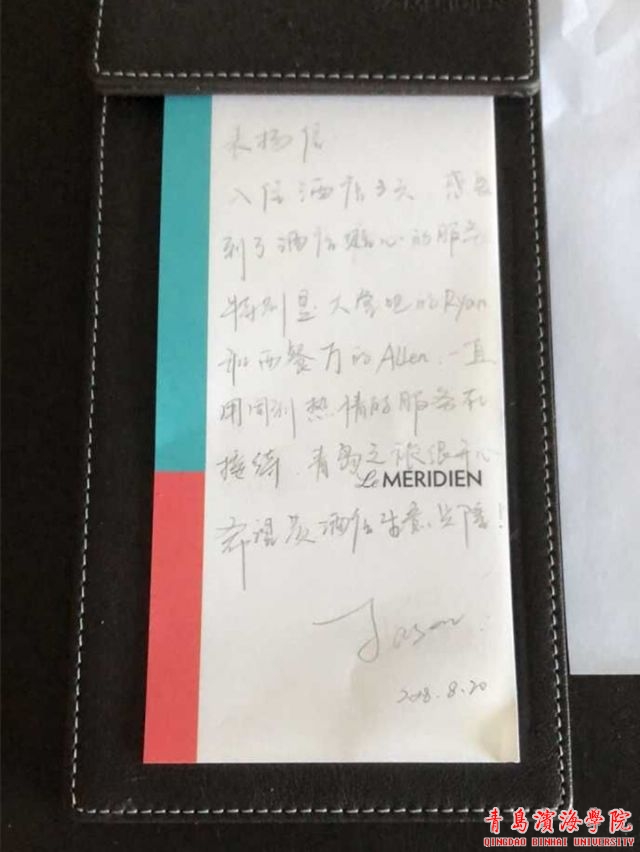 表扬信
入住酒店3天 感受
到了酒店贴心的服务
特别是大堂吧的Ryan
和西餐厅的Allen.一直
用周到热情的服务和
接待.青岛之旅很开心
Le MERIDIEN
希望贵酒店生意兴隆!
Jason
2018.8.20
青島濱海學院
QINGDAO BINHAI UNIVERSITY